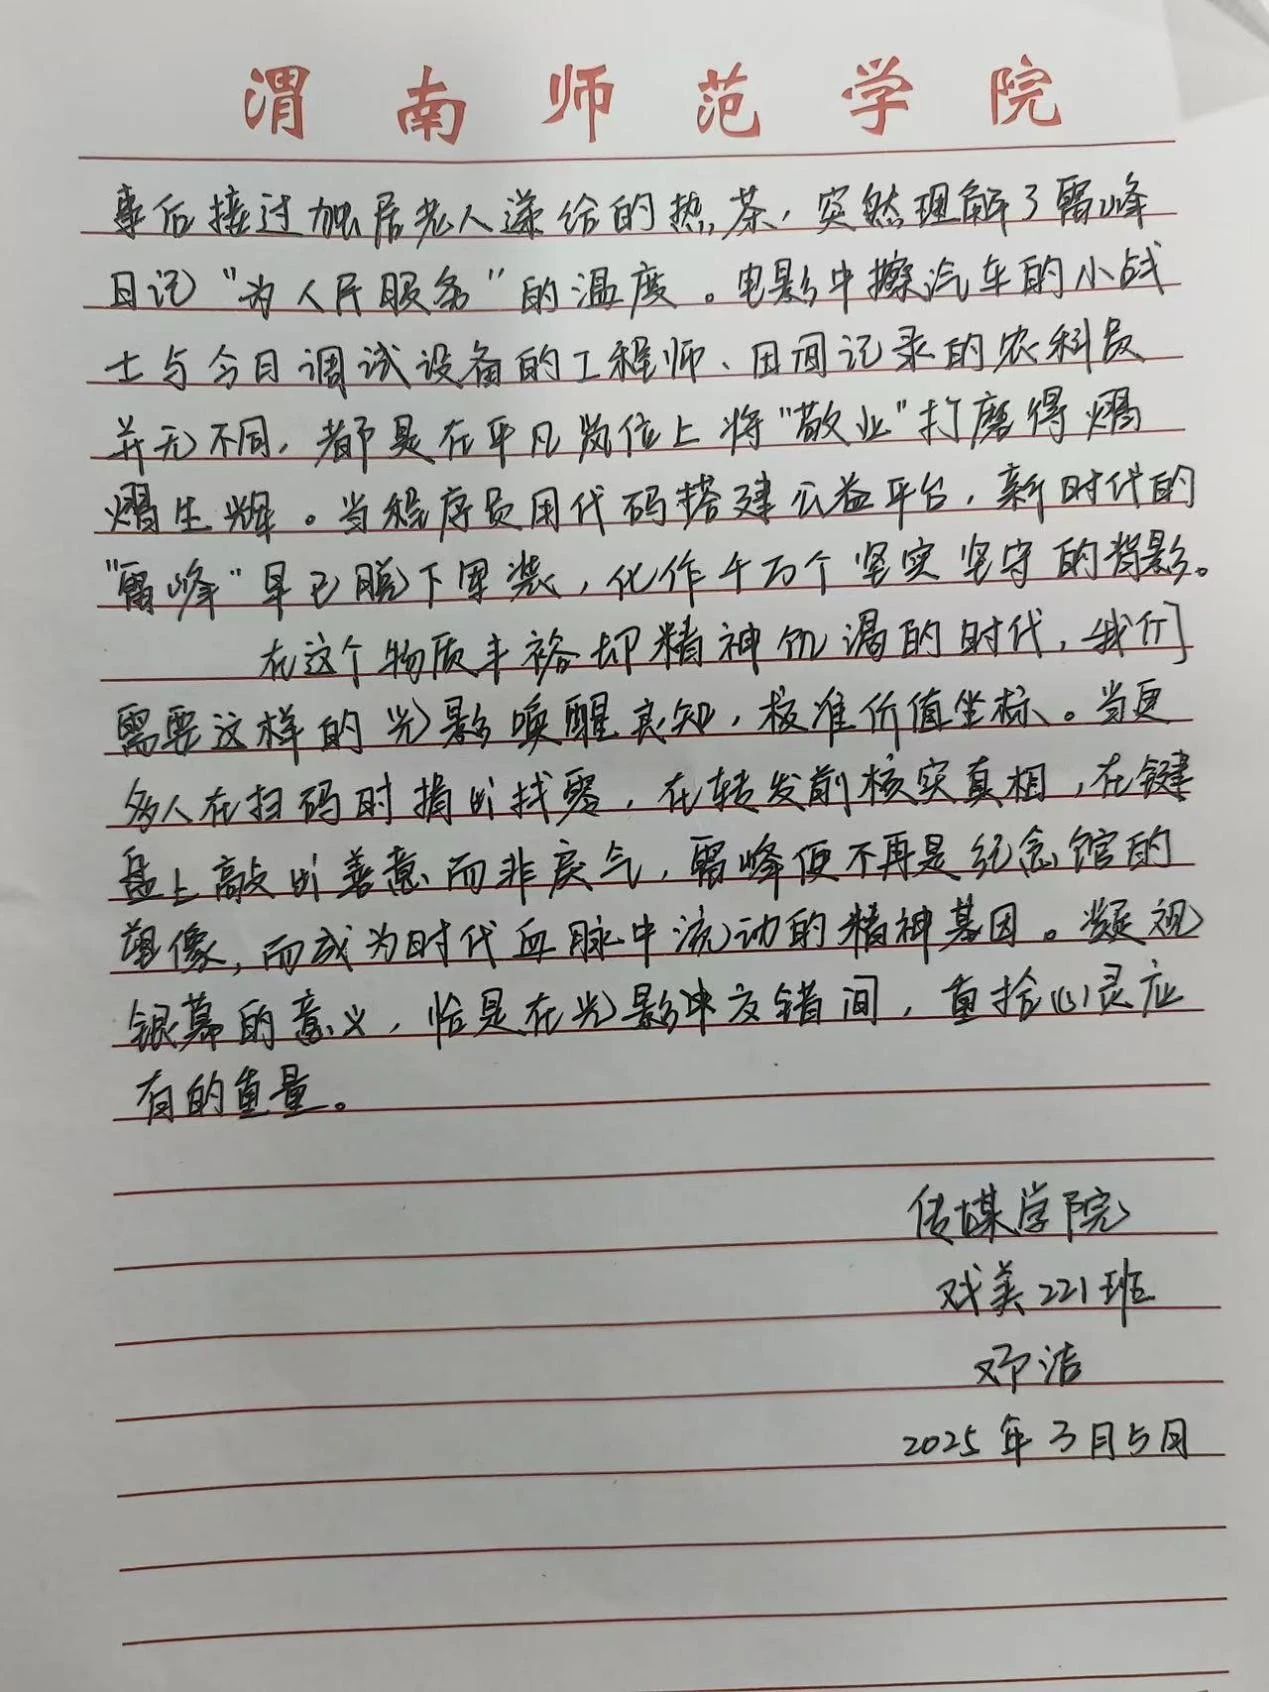 渭南师范学院
事后接过独居老人递给的热茶，突然理解了雷峰
日记“为人民服务”的温度。电影中擦汽车的小战
士与今日调试设备的工程师、田间记录的农科员
并无不同，都是在平凡岗位上将“敬业”打磨得熠
熠生辉。当程序员用代码搭建公益平台，新时代的
“雷峰”早已脱下军装，化作千万个坚实坚守的背影。
在这个物质丰裕却精神饥渴的时代，我们
需要这样的光影唤醒良知，校准价值坐标。当更
多人在扫码时捐出找零，在转发前核实真相，在键
盘上敲出善意而非戾气，雷峰便不再是纪念馆的
塑像，而成为时代血脉中流动的精神基因。凝视
银幕的意义，恰是在光影中交错间，重拾心灵应
有的重量。
传媒学院
戏美221班
邓洁
2025年3月5日